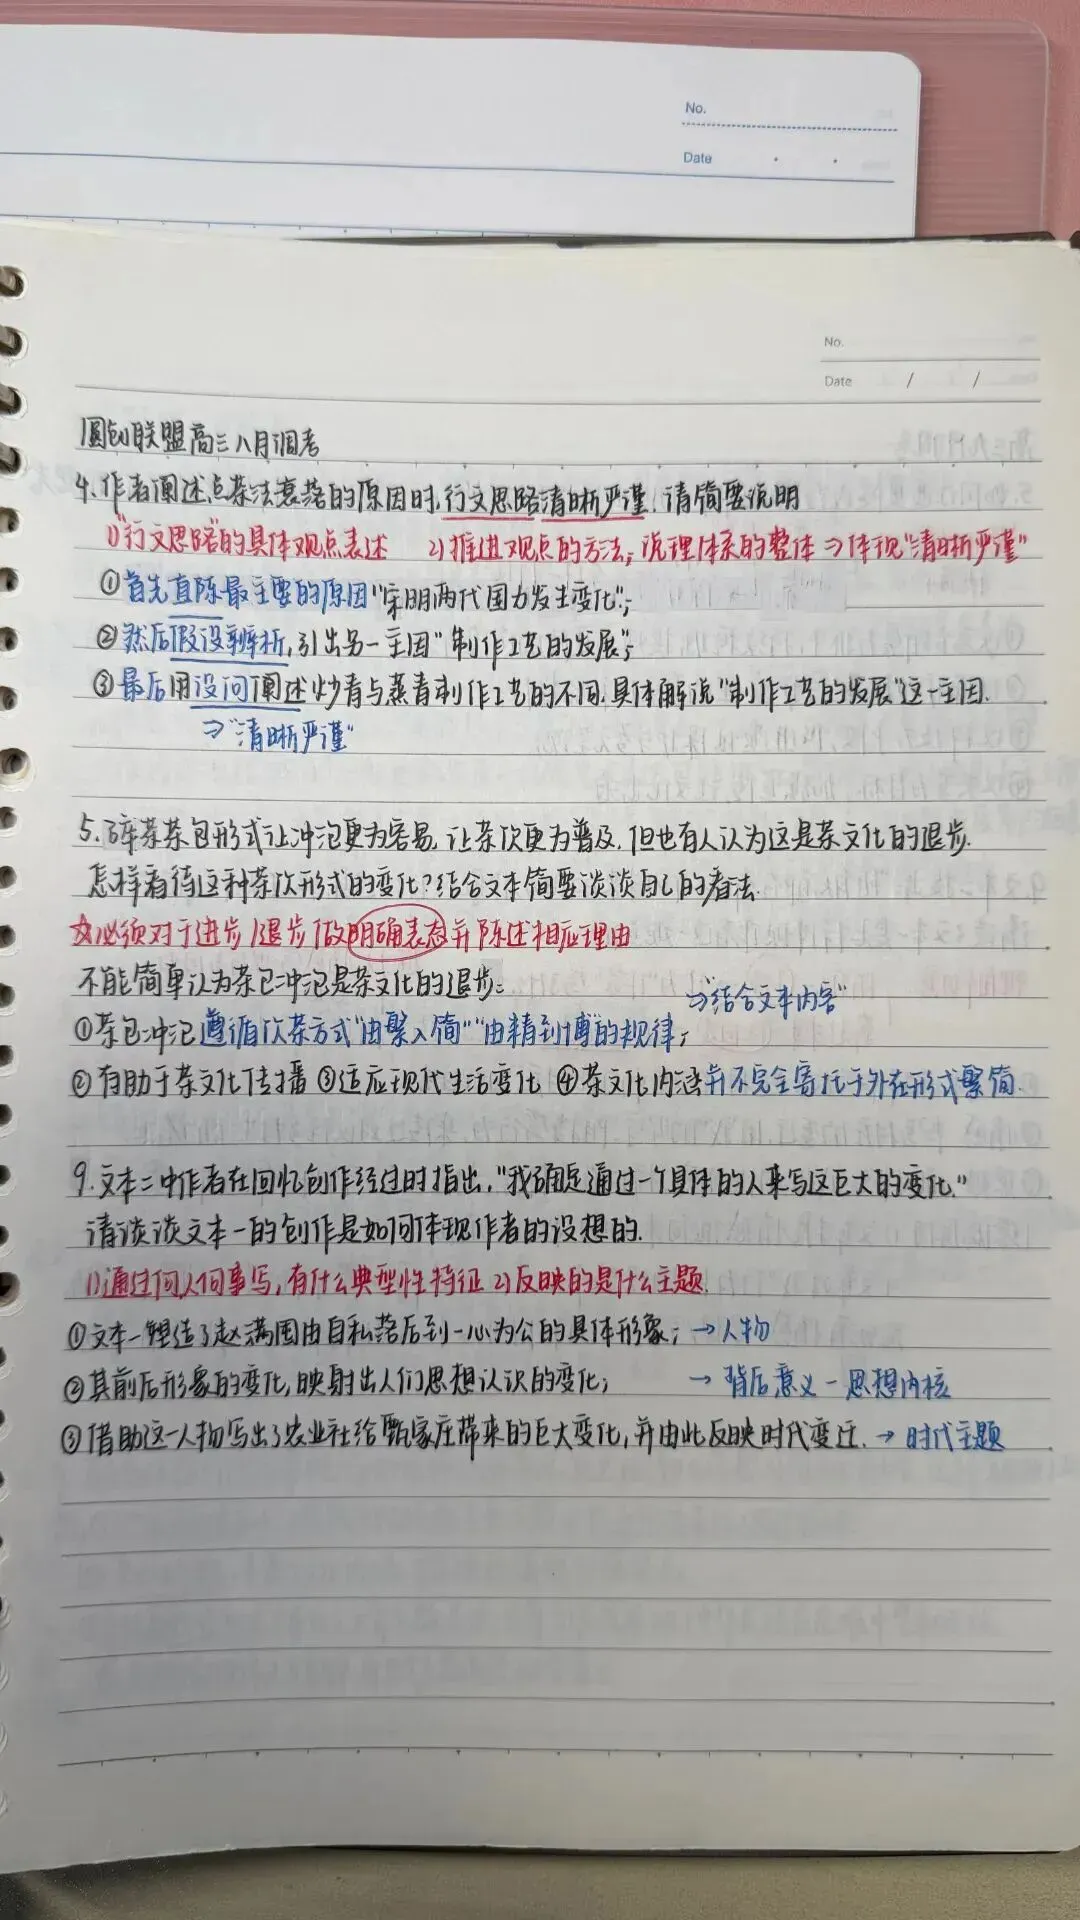 No.
Date
No.
Date / /
圆创联盟高三八月调考
4.作者阐述点茶法衰落的原因时,行文思路清晰严谨.请简要说明
1)"行文思路"的具体观点表述 2)推进观点的方法;说理体系的整体⇒体现"清晰严谨"
①首先直陈最主要的原因"宋明两代国力发生变化";
②然后假设辨析,引出另一主因"制作工艺的发展";
③最后用设问阐述炒青与蒸青制作工艺的不同,具体解说"制作工艺的发展"这一主因.
⇒"清晰严谨"
5.碎茶茶包形式让冲泡更为容易,让茶饮更为普及.但也有人认为这是茶文化的退步.
怎样看待这种茶饮形式的变化?结合文本简要谈谈自己的看法.
☆必须对于进步/退步做明确表态并陈述相应理由
不能简单认为茶包冲泡是茶文化的退步:
⇒"结合文本内容"
①茶包冲泡遵循饮茶方式"由繁入简""由精到博"的规律;
②有助于茶文化传播③适应现代生活变化 ④茶文化内涵并不完全寄托于外在形式繁简.
9.文本二中作者在回忆创作经过时指出,"我确定通过一个具体的人来写这巨大的变化."
请谈谈文本一的创作是如何体现作者的设想的.
1)通过何人何事写,有什么典型性特征 2)反映的是什么主题.
①文本一塑造了赵满囤由自私落后到一心为公的具体形象;→人物
②其前后形象的变化,映射出人们思想认识的变化; →背后意义-思想内核
③借助这一人物写出了农业社给甄家庄带来的巨大变化,并由此反映时代变迁.→时代主题